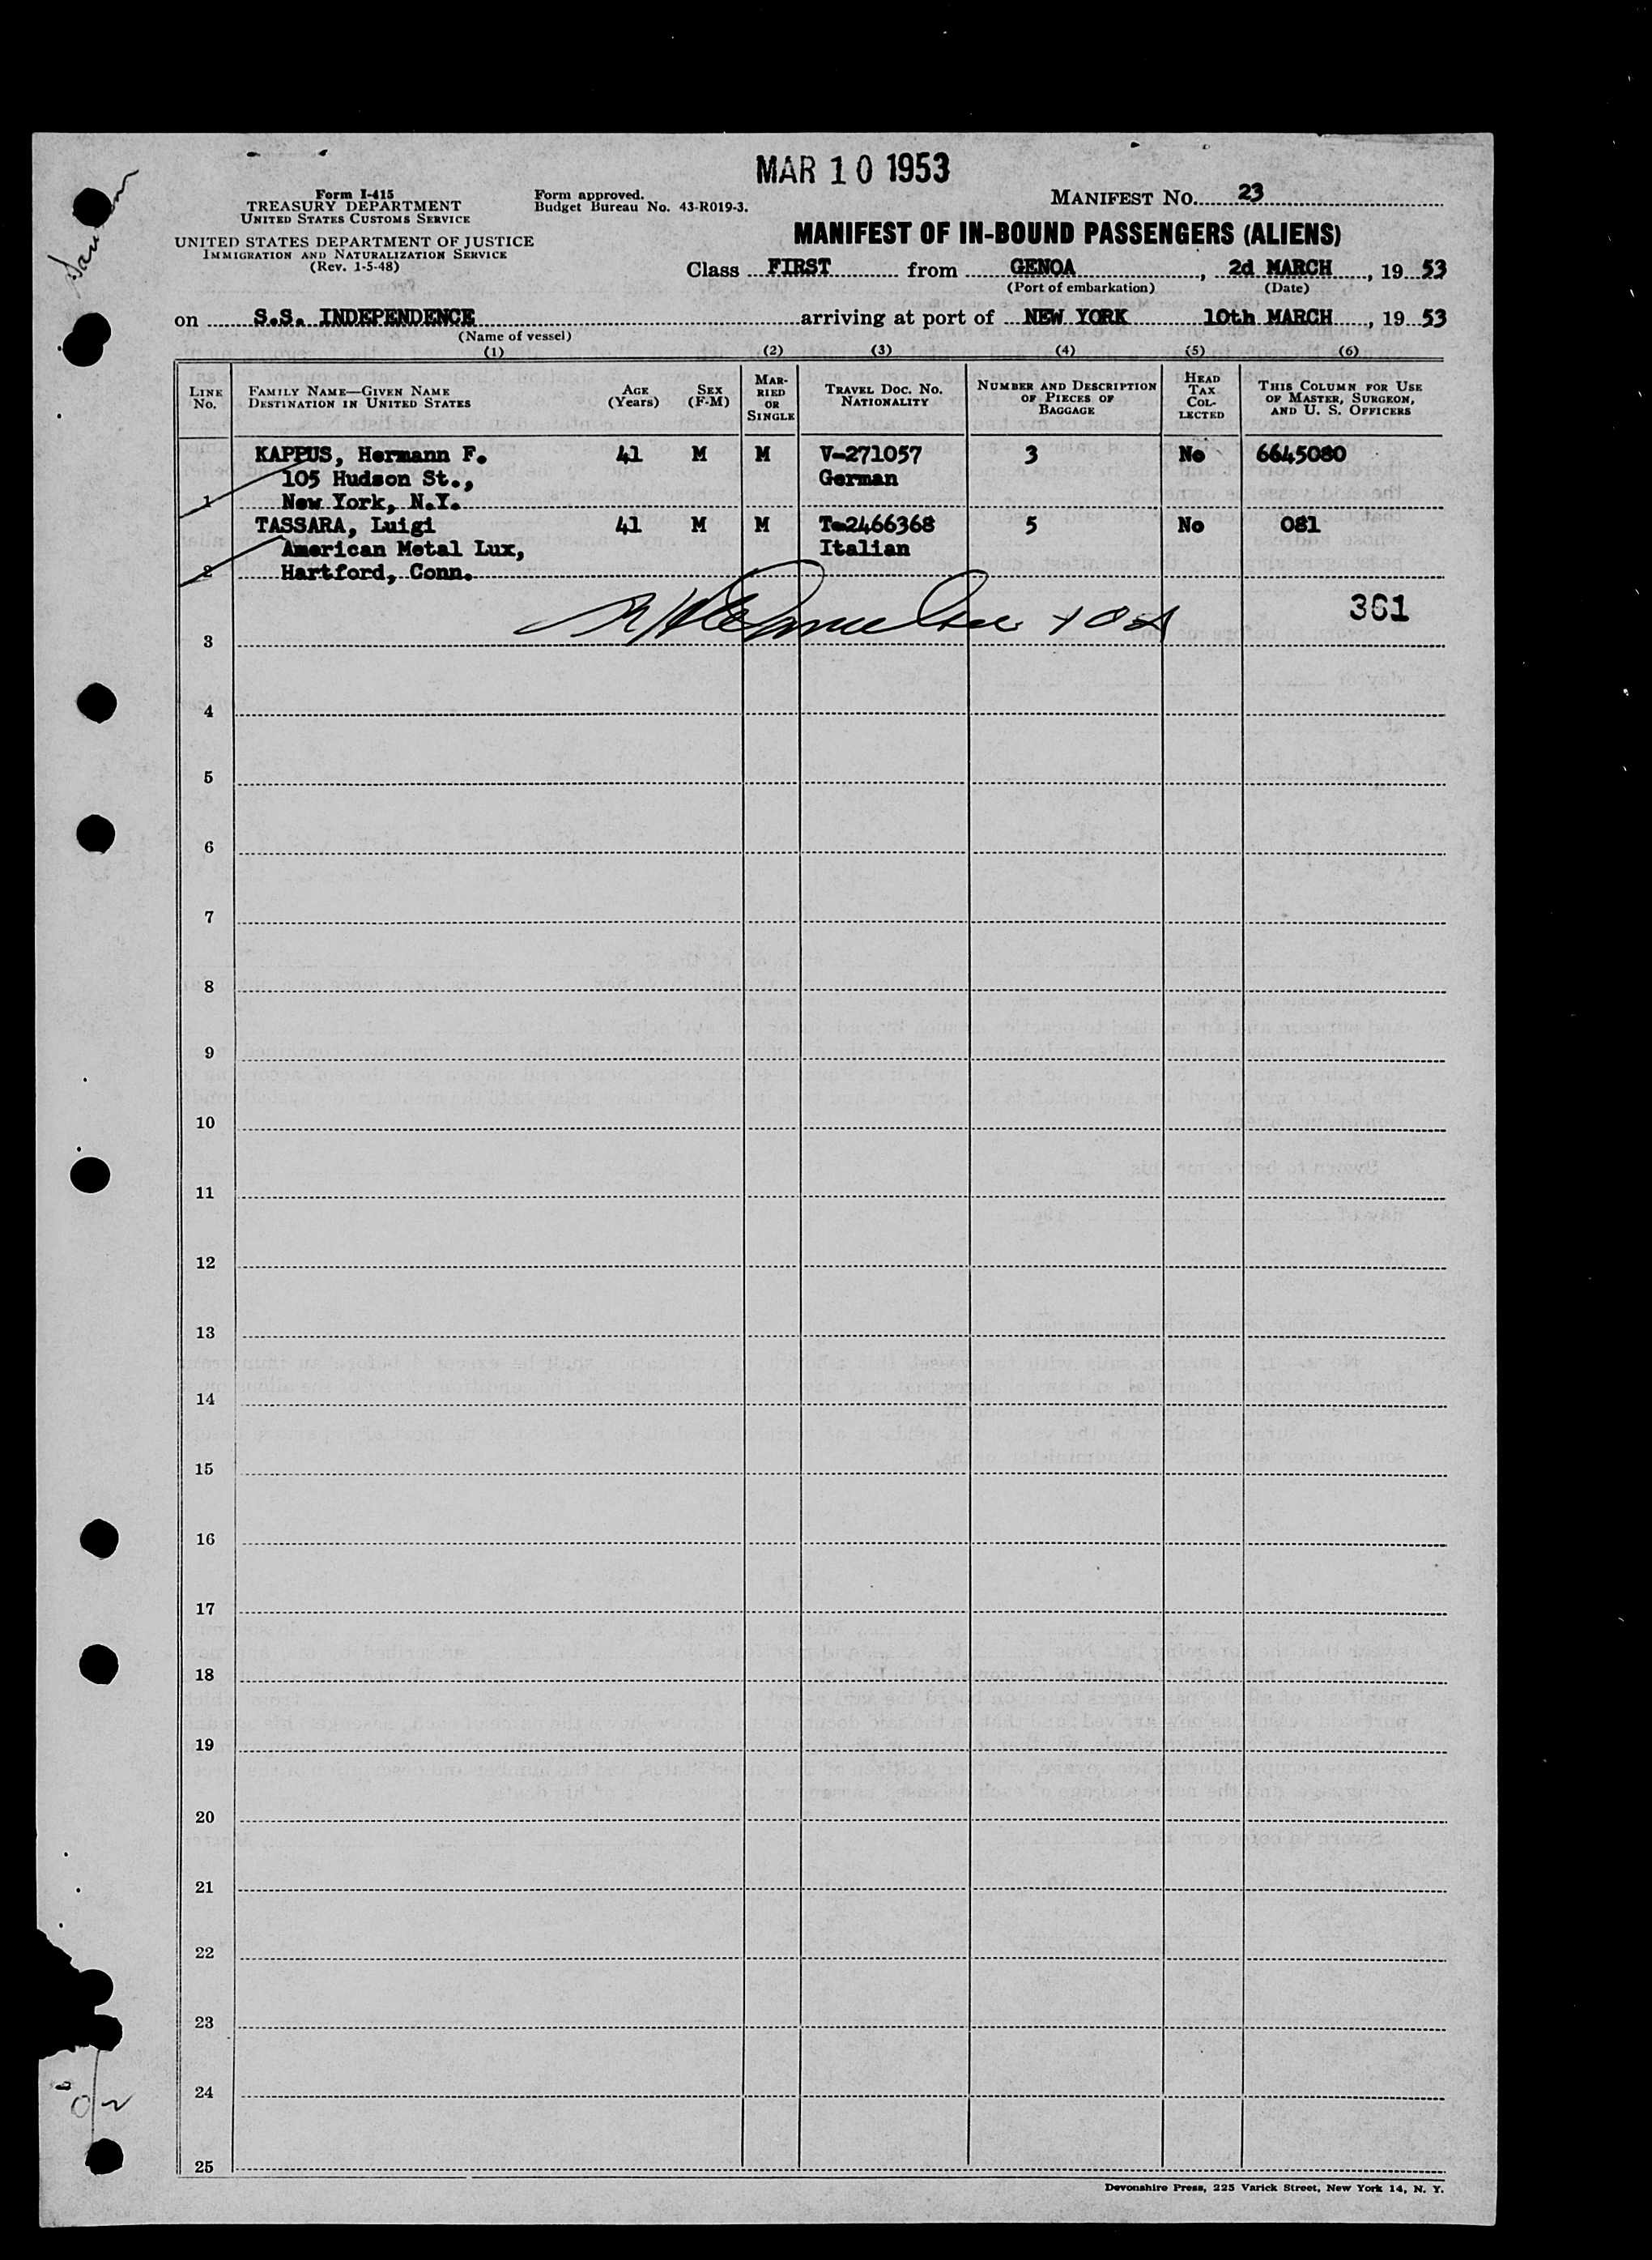 MAR 10 1953
Form I-415
TREASURY DEPARTMENT
UNITED STATES CUSTOMS SERVICE
Form approved.
Budget Bureau No. 43-R019-3.
MANIFEST NO. 23
UNITED STATES DEPARTMENT OF JUSTICE
IMMIGRATION AND NATURALIZATION SERVICE
(Rev. 1-5-48)
MANIFEST OF IN-BOUND PASSENGERS (ALIENS)
Class FIRST from GENOA, 2d MARCH, 1953
(Port of embarkation) (Date)
on S.S. INDEPENDENCE arriving at port of NEW YORK 10th MARCH, 1953
(Name of vessel)
(1) (2) (3) (4) (5) (6)
LINE NO.
FAMILY NAME—GIVEN NAME
DESTINATION IN UNITED STATES
AGE (Years)
SEX (F-M)
MARRIED OR SINGLE
TRAVEL DOC. NO.
NATIONALITY
NUMBER AND DESCRIPTION OF PIECES OF BAGGAGE
HEAD TAX COLLECTED
THIS COLUMN FOR USE OF MASTER, SURGEON, AND U. S. OFFICERS
KAPPUS, Hermann F. 41 M M V-271057 3 No 6645080
105 Hudson St., German
1 New York, N.Y.
TASSARA, Luigi 41 M M T-2466368 5 No 081
American Metal Lux, Italian
2 Hartford, Conn.
361
3
4
5
6
7
8
9
10
11
12
13
14
15
16
17
18
19
20
21
22
23
24
25
Devonshire Press, 225 Varick Street, New York 14, N. Y.